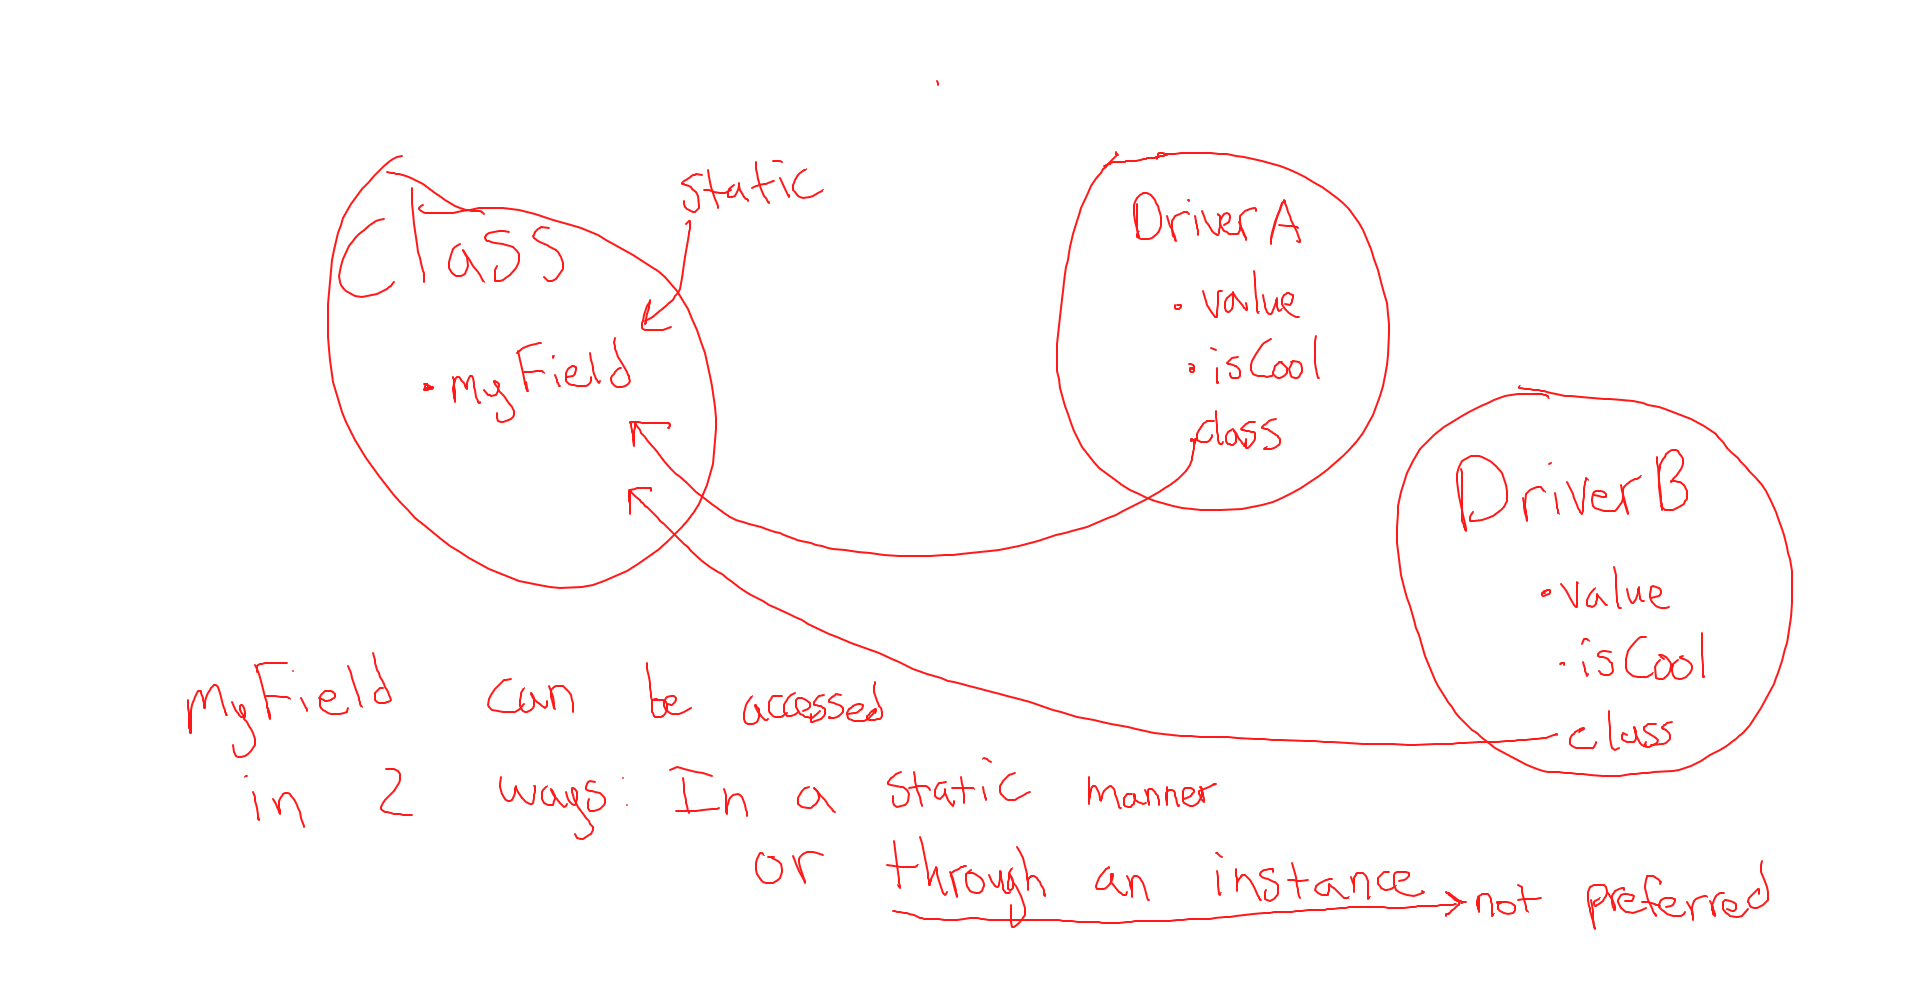 static
Class
• myField
Driver A
• value
• isCool
class
Driver B
• value
• isCool
class
myField can be accessed
in 2 ways: In a static manner
or through an instance → not preferred